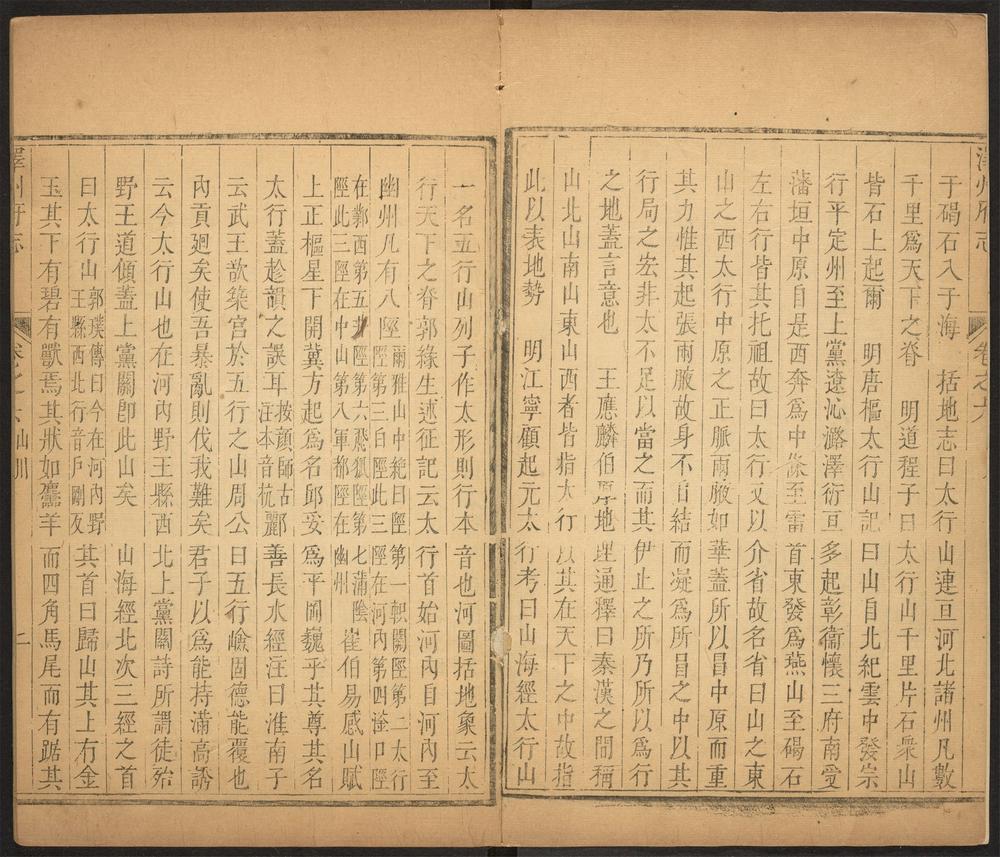 澤州府志
卷之六
于碣石入于海　括地志曰太行山連亘河北諸州凡數
千里爲天下之脊　明道程子曰太行山千里片石衆山
皆石上起爾　明唐樞太行山記曰山自北紀雲中發宗
行平定州至上黨遼沁潞澤衍亘多起彰衞懷三府南受
藩垣中原自是西奔爲中條至雷首東發爲燕山至碣石
左右行皆其托祖故曰太行又以介省故名省曰山之東
山之西太行中原之正脈兩腋如華蓋所以昌中原而重
其力惟其起張兩腋故身不自結而凝爲所昌之中以其
行局之宏非太不足以當之而其伊止之所乃所以爲行
之地蓋言意也　王應麟伯厚地理通釋曰秦漢之間稱
山北山南山東山西者皆指太行以其在天下之中故指
此以表地勢　明江寧顧起元太行考曰山海經太行山
一名五行山列子作太形則行本音也河圖括地象云太
行天下之脊郭緣生述征記云太行首始河內自河內至
幽州凡有八陘爾雅山中絶曰陘第一軹關陘第二太行陘第三白陘此三陘在河內第四滏口陘
在鄴西第五井陘第六飛狐陘第七蒲陰陘此三陘在中山第八軍都陘在幽州　崔伯易感山賦
上正樞星下開冀方起爲名邱妥爲平岡巍乎其尊其名
太行蓋趁韻之誤耳按顔師古注本音杭酈善長水經注曰淮南子
云武王欲築宮於五行之山周公曰五行嶮固德能覆也
內貢廻矣使吾暴亂則伐我難矣君子以爲能持滿高誘
云今太行山也在河內野王縣西北上黨關詩所謂徒殆
野王道傾蓋上黨關卽此山矣　山海經北次三經之首
曰太行山郭璞傳曰今在河內野王縣西北行音戶剛反其首曰歸山其上有金
玉其下有碧有獸焉其狀如麢羊而四角馬尾而有踞其
澤州府志
卷之六山川
二